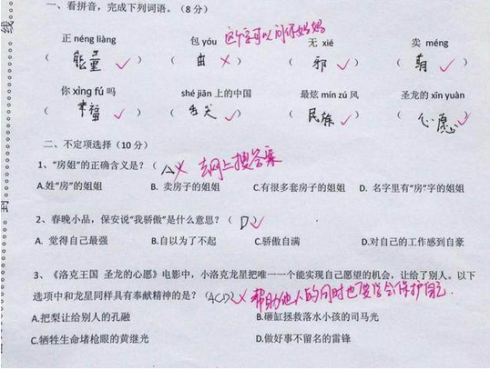 一、看拼音，完成下列词语。（8分）
这个字可以问你妈妈
正 néng liàng 包 yóu 无 xié 卖 méng
（ 能量 ✓ ） （ 由 × ） （ 邪 ✓ ） （ 萌 ✓ ）
你 xìng fú 吗 shé jiān 上的中国 最炫 mín zú 风 圣龙的 xīn yuàn
（ 幸福 ✓ ） （ 舌尖 ✓ ） （ 民族 ✓ ） （ 心愿 ✓ ）
二、不定项选择（10分）
1、“房姐”的正确含义是？（ A × 去网上搜答案
A.姓“房”的姐姐 B. 卖房子的姐姐 C.有很多套房子的姐姐 D. 名字里有“房”字的姐姐
2、春晚小品，保安说“我骄傲”是什么意思？（ D ✓
A. 觉得自己最强 B.自以为了不起 C.骄傲自满 D.对自己的工作感到自豪
3、《洛克王国 圣龙的心愿》电影中，小洛克龙星把唯一一个能实现自己愿望的机会，让给了别人。以下
选项中和龙星同样具有奉献精神的是？（ACD × 帮助他人的同时也要学会保护自己.
A.把梨让给别人的孔融 B.砸缸拯救落水小孩的司马光
C.牺牲生命堵枪眼的黄继光 D.做好事不留名的雷锋
线
封